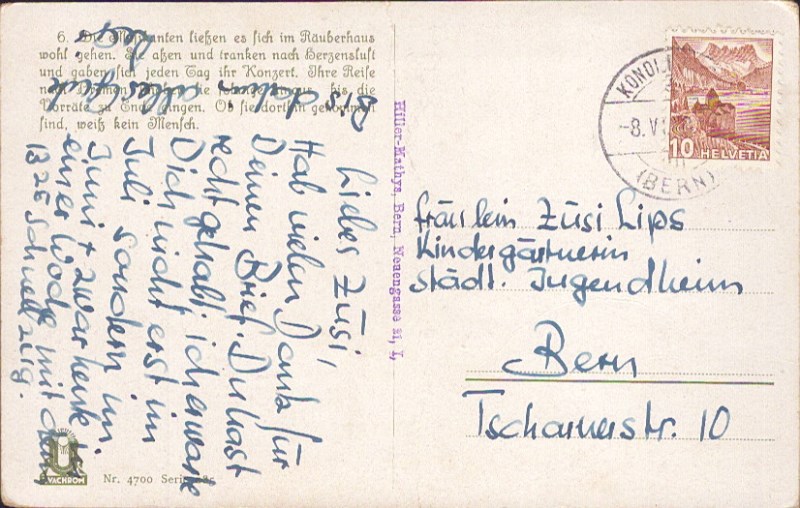 6. Die Musikanten ließen es sich im Räuberhaus
wohl gehen. Sie aßen und tranken nach Herzenslust
und gaben sich jeden Tag ihr Konzert. Ihre Reise
nach Bremen die bis die
Vorräte zu Ende gingen. Ob sie dort hin gekommen
sind, weiß kein Mensch.
Liebes Züsi,
Hab vielen Dank für
Deinen Brief. Du hast
recht gehabt, ich erwarte
Dich nicht erst im
Juli sondern im
Juni + zwar heute in
einer Woche mit dem
1325 Schnellzug.
Alles Gute
Hiller-Mathys, Bern, Neuengasse 21, I,
KONOL
-8. V
(BERN)
10 HELVETIA
Fräulein Züsi Lips
Kindergärtnerin
Städt. Jugendheim
Bern
Tscharnerstr. 10
UVACHROM
Nr. 4700 Serie